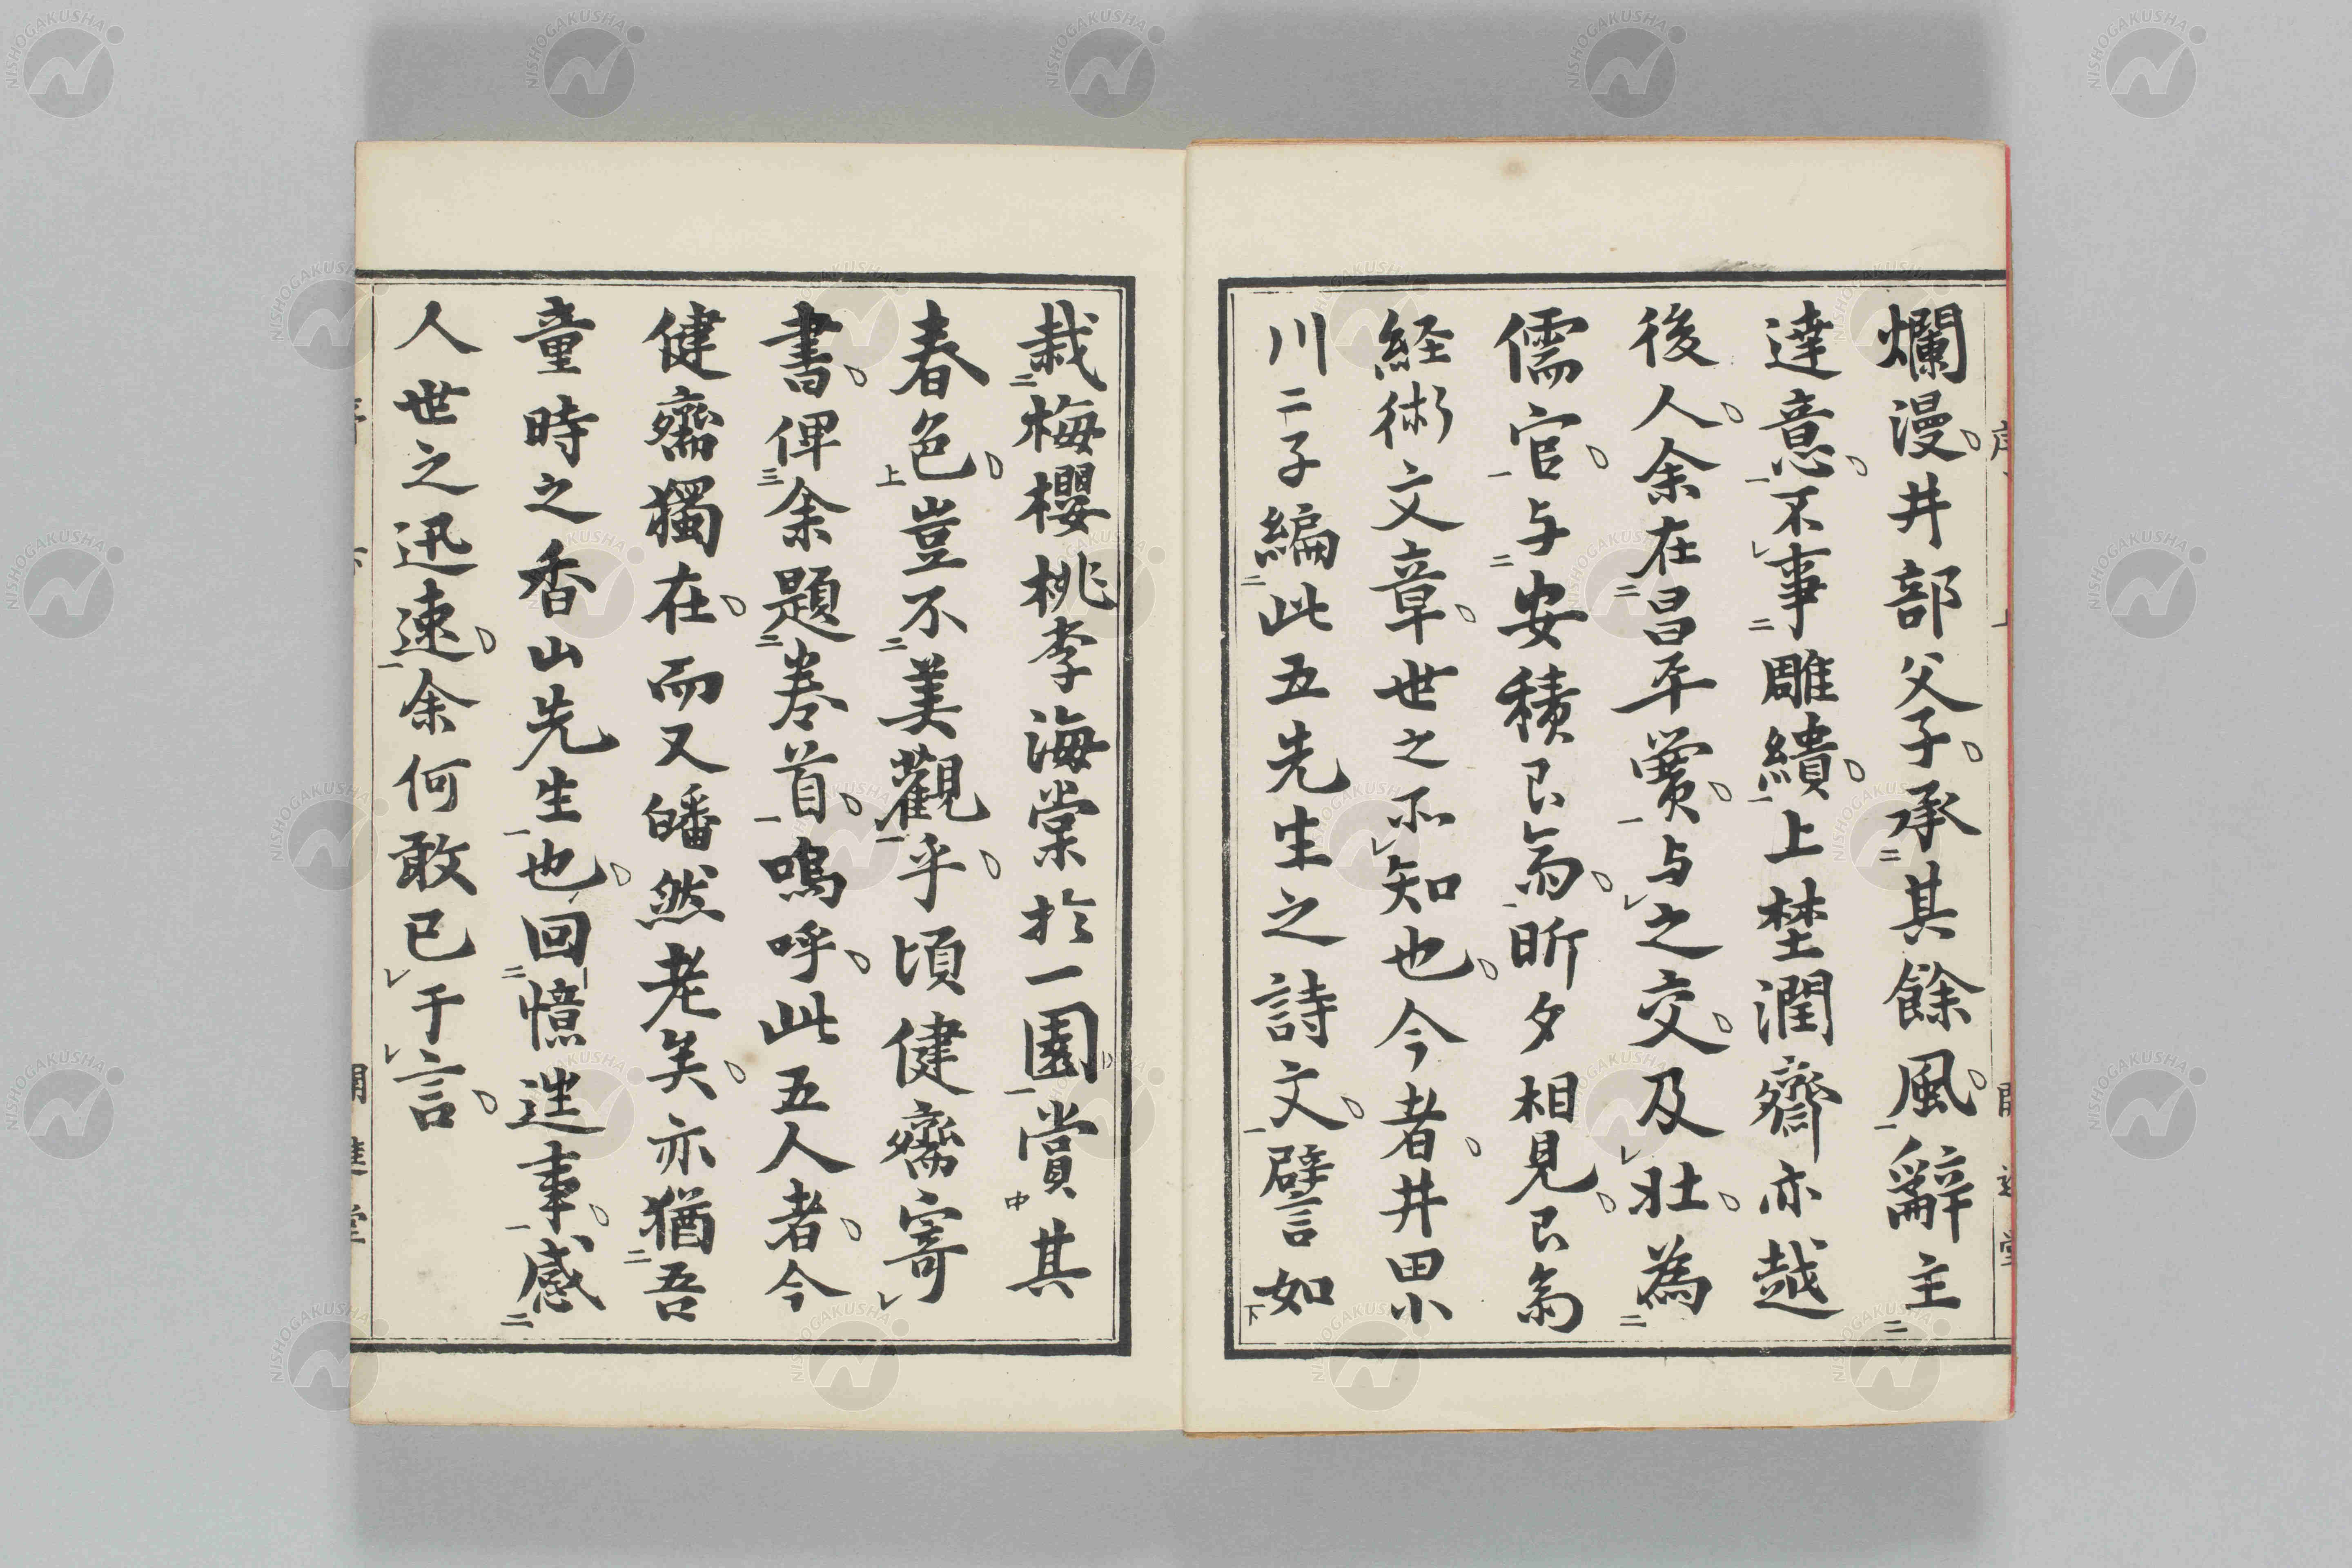 爛漫井部父子承其餘風辭主
達意不事雕繢上埜潤齊亦越
後人余在昌平黌与之交及壯為
儒官与安積艮斎昕夕相見艮斎
経術文章世之所知也今者井田小
川二子編此五先生之詩文譬如
栽梅櫻桃李海棠於一園賞其
春色豈不美觀乎頃健齋寄
書俾余題巻首嗚呼此五人者今
健齋獨在而又皤然老矣亦猶吾
童時之香山先生也回憶往事感
人世之迅速余何敢已于言